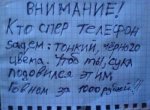 ВНИМАНИЕ!
Кто спер телефон
задем: тонкий, чёрного
цвета. Что ты, сука
подовился этим
говном за 1000 рублей!!!